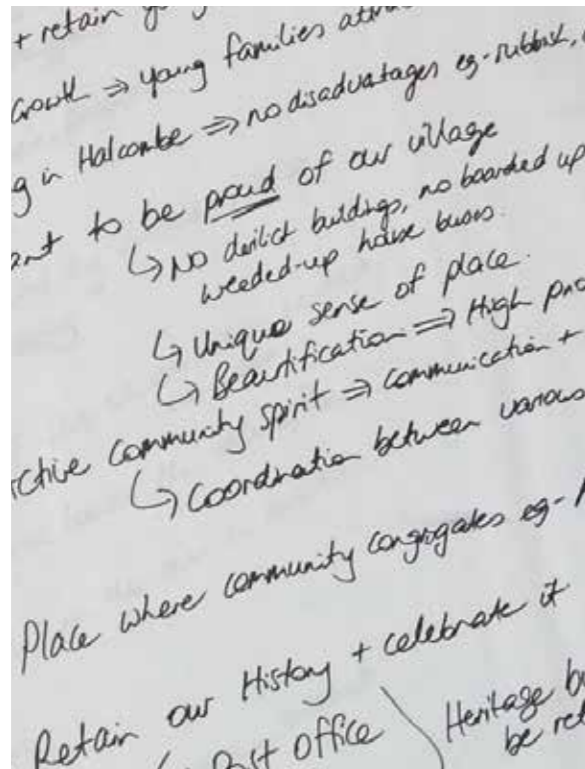 + retain
Growth ⇒ young families
g in Halcombe ⇒ no disadvantages eg- rubbish,
to be proud of our village
↳ No derilict buildings, no boarded up
weeded-up house
↳ Unique sense of place.
↳ Beautification ⇒ High
community spirit ⇒ communication +
↳ Coordination between various
Place where community congregates eg-
Retain our History + celebrate it
Post Office
Heritage
be